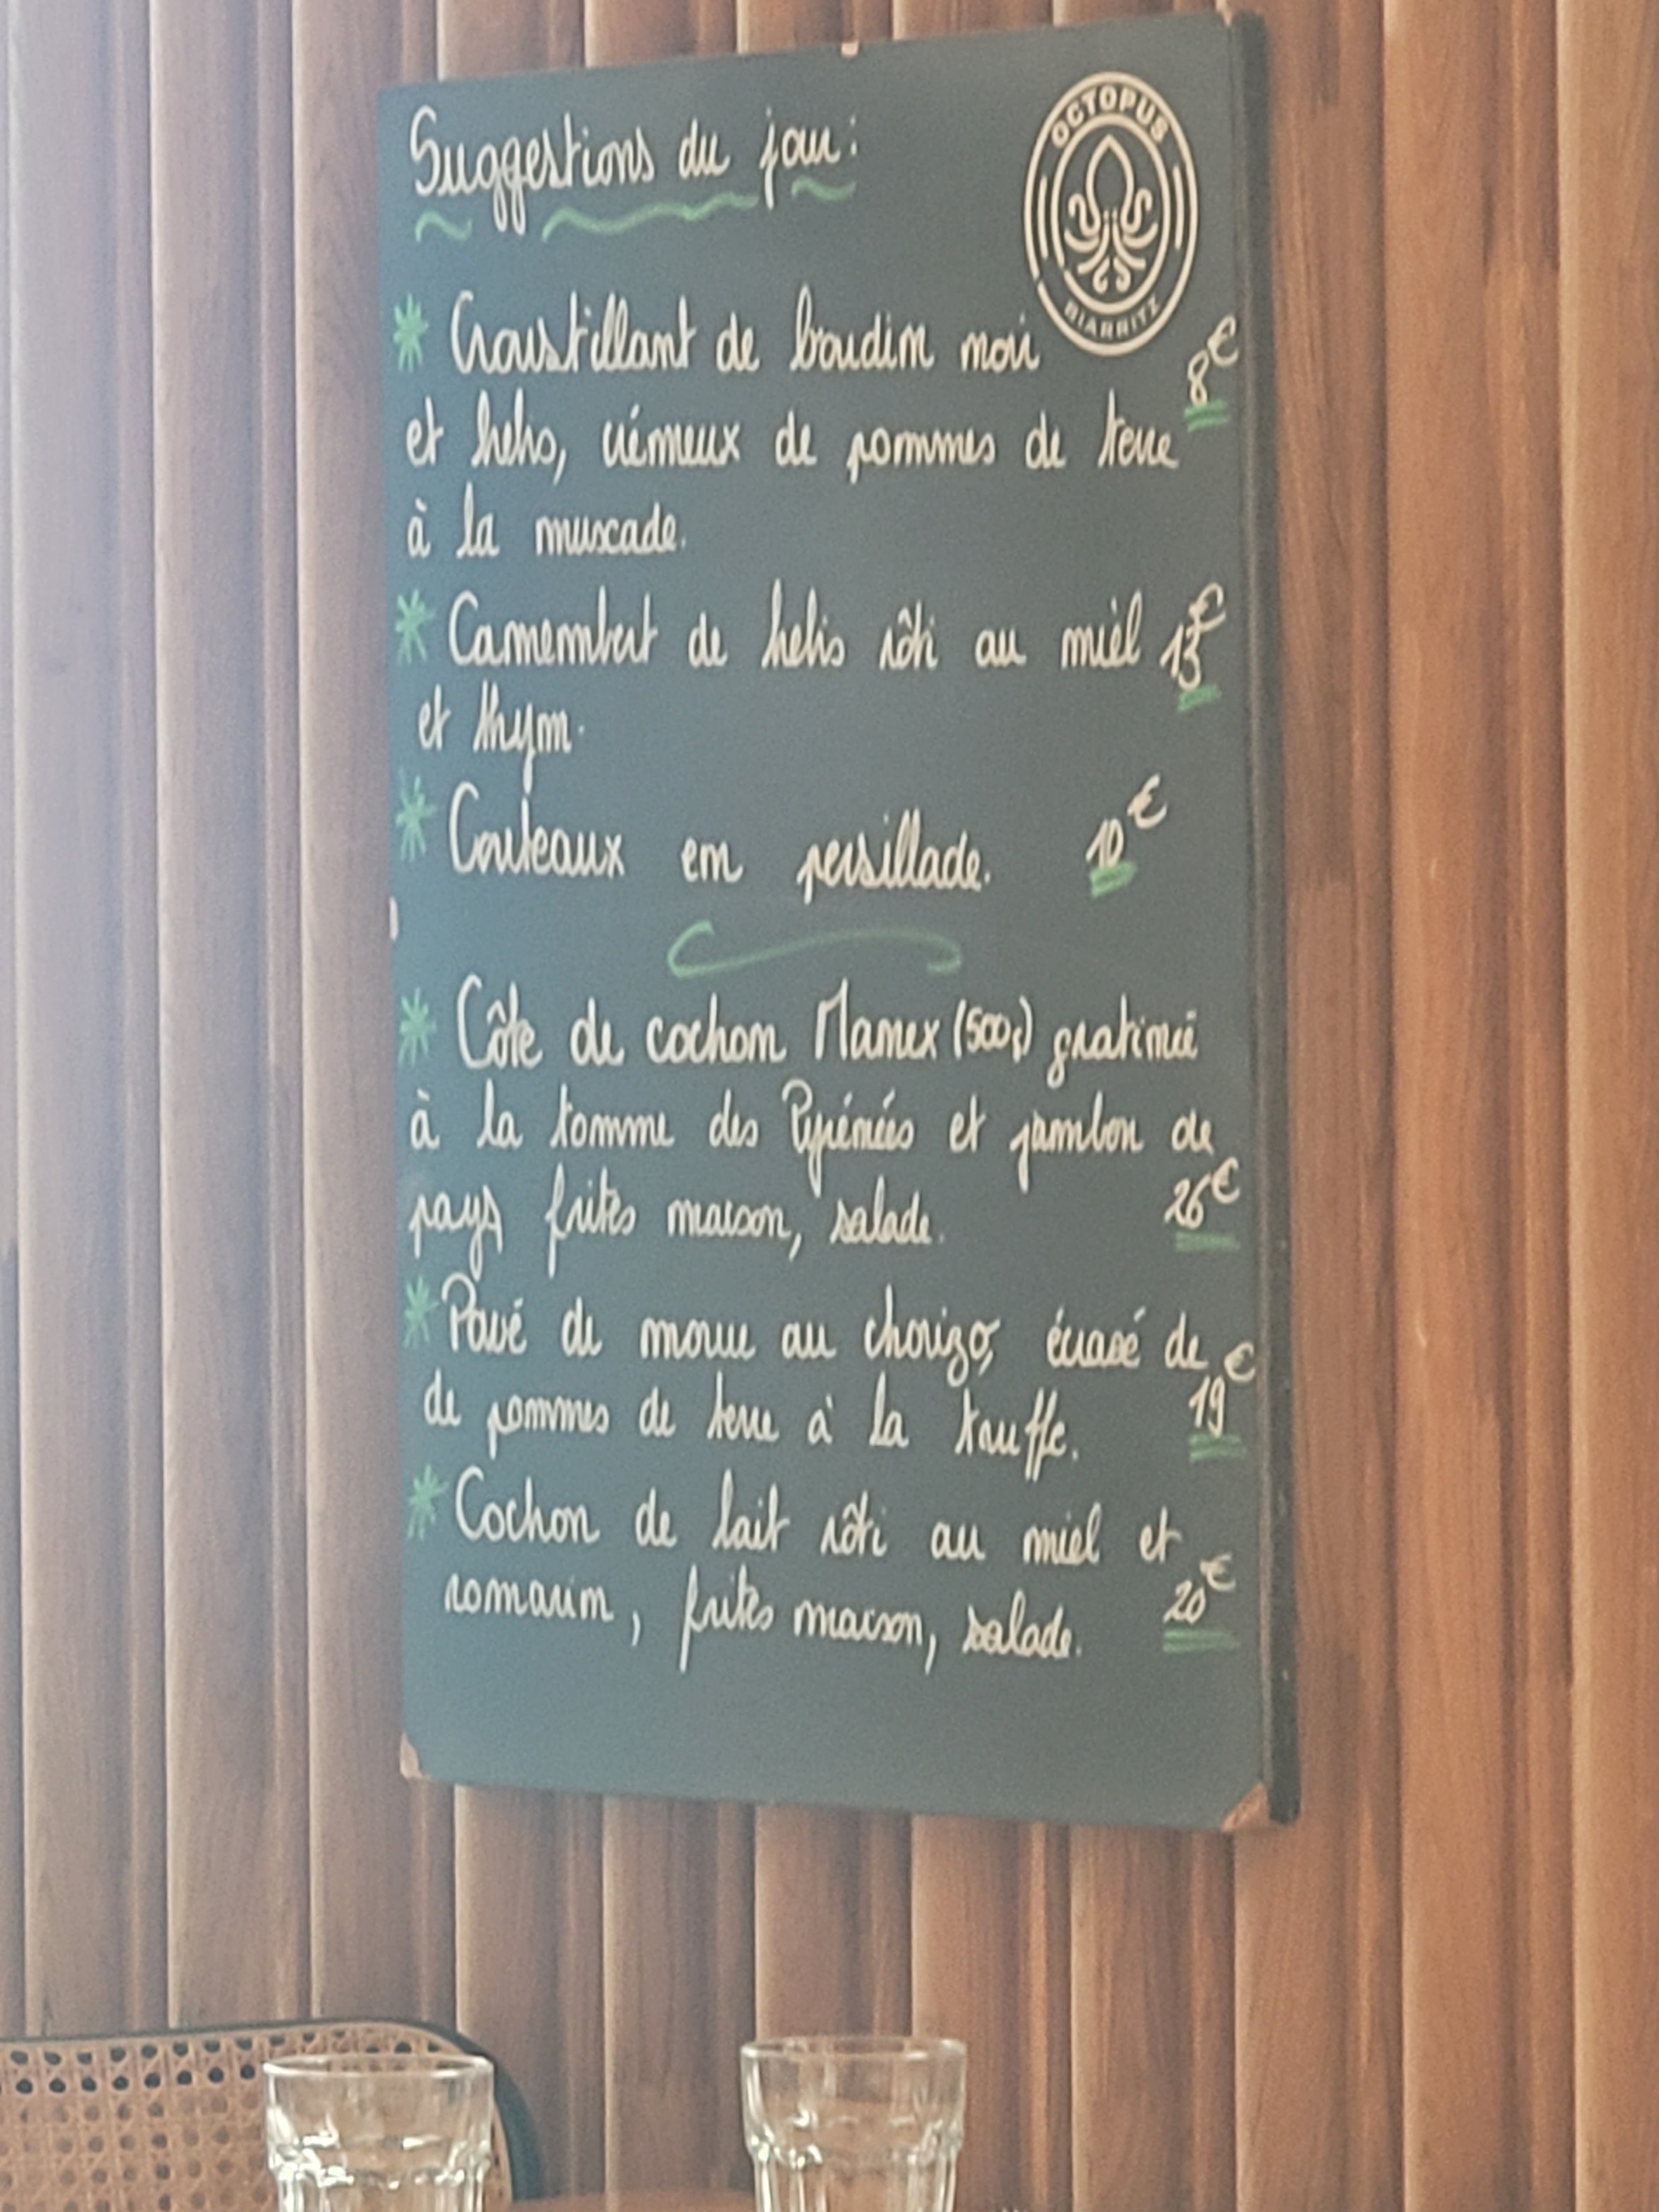 Suggestions du jour :
OCTOPUS
BIARRITZ
* Croustillant de boudin noir
8€
et brebis, crémeux de pommes de terre
à la muscade.
* Camembert de brebis rôti au miel 13€
et thym.
* Couteaux en persillade. 10€
* Côte de cochon Manex (500g) gratinée
à la tomme des Pyrénées et jambon de
pays, frites maison, salade. 26€
* Pavé de morue au chorizo, écrasé de
de pommes de terre à la truffe. 19€
* Cochon de lait rôti au miel et
romarin, frites maison, salade. 20€